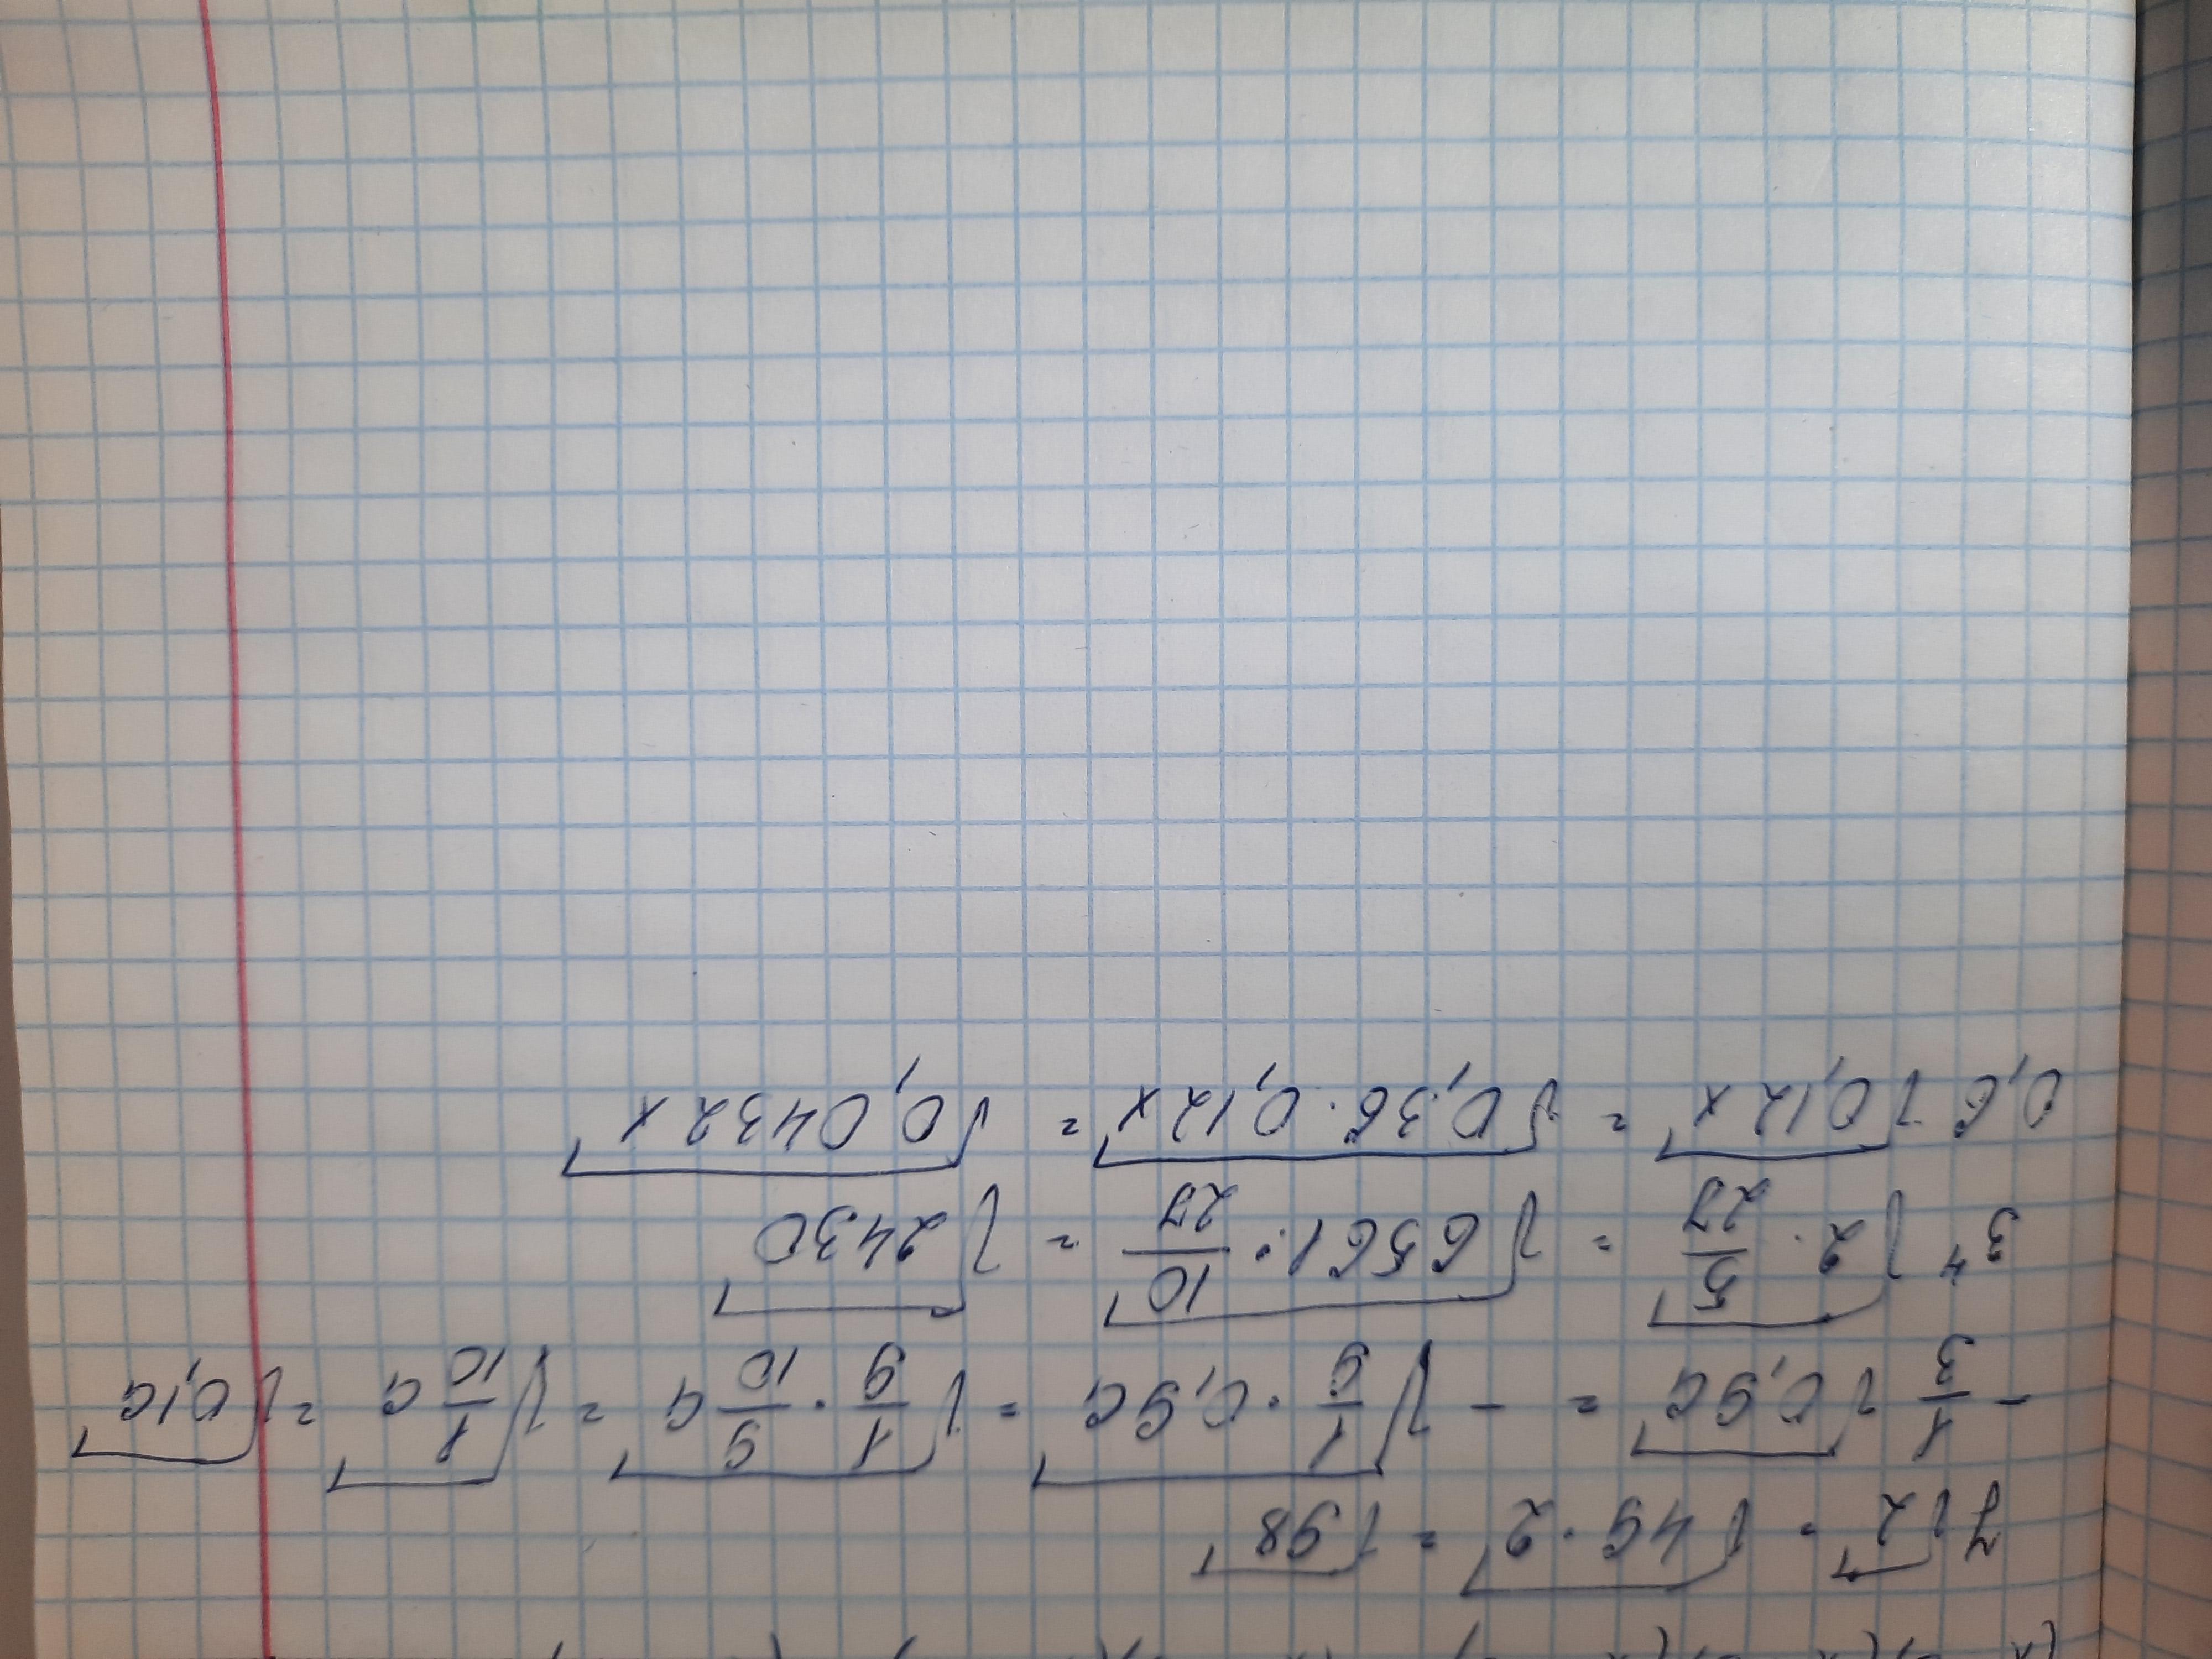 7√2 = √49·2 = √98
- 1/3 √0,9a = - √1/9 · 0,9a = √1/9 · 9/10 a = √1/10 a = √0,1a
3⁴ √2 · 5/27 = √6561 · 10/27 = √2430
0,6 √0,12x = √0,36 · 0,12x = √0,0432x